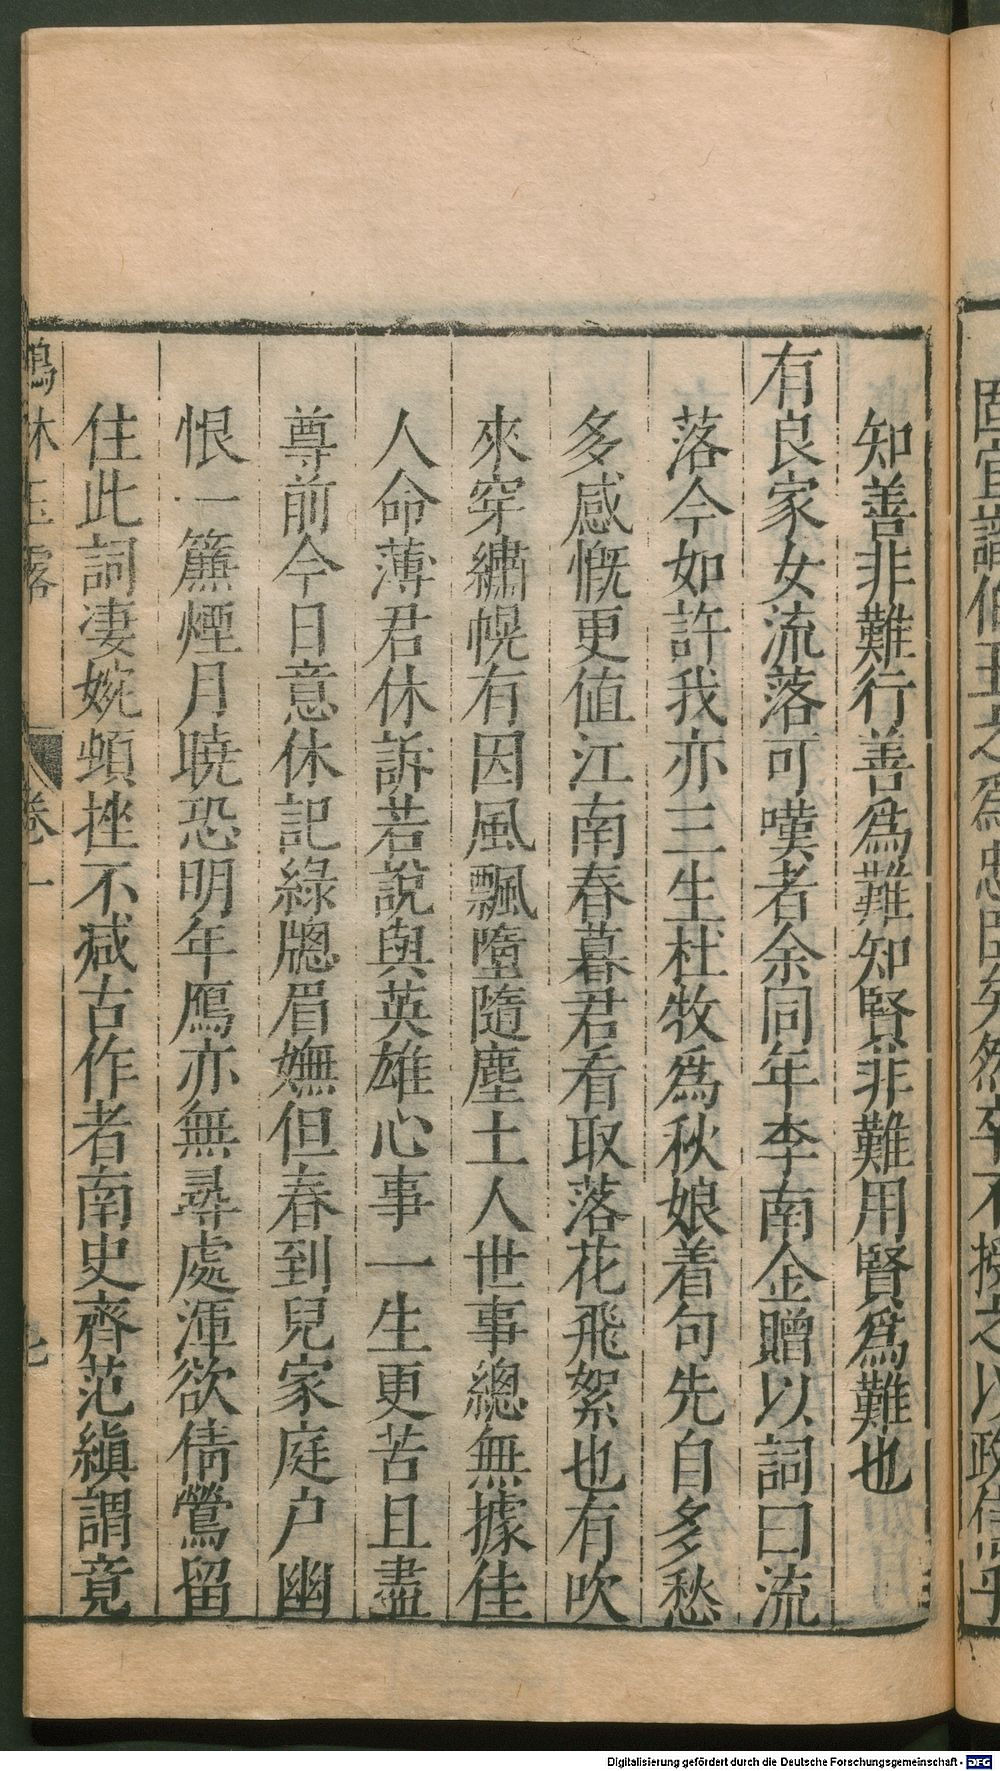 知善非難行善爲難知賢非難用賢爲難也
有良家女流落可嘆者余同年李南金贈以詞曰流
落今如許我亦三生杜牧爲秋娘着句先自多愁
多感慨更值江南春暮君看取落花飛絮也有吹
來穿繡幌有因風飄墮隨塵土人世事總無據佳
人命薄君休訴若說與英雄心事一生更苦且盡
尊前今日意休記綠牕眉嫵但春到兒家庭户幽
恨一簾煙月曉恐明年鴈亦無尋處渾欲倩鶯留
住此詞凄婉頓挫不减古作者南史齊范縝謂竟
卷一
Digitalisierung gefördert durch die Deutsche Forschungsgemeinschaft - DFG